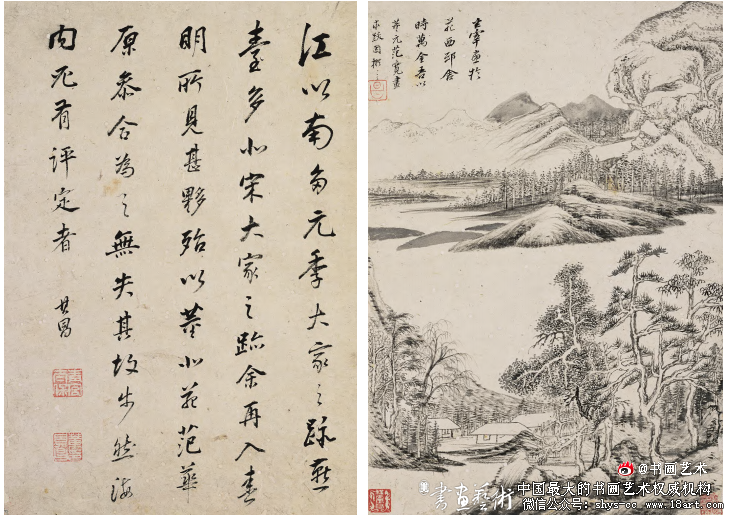 江以南多元季大家之跡燕
臺多北宋大家之跡余再入春
明所見甚夥殆以董北苑范華
原參合為之無失其故步然海
内有評定者 其昌
玄宰畫於
苑西邸舍
時萬金吾以
董元范寬畫
求跋因擬之
@书画艺术
書畫藝術
中国最大的书画艺术权威机构
微信公众号：shys-cc www.18art.com